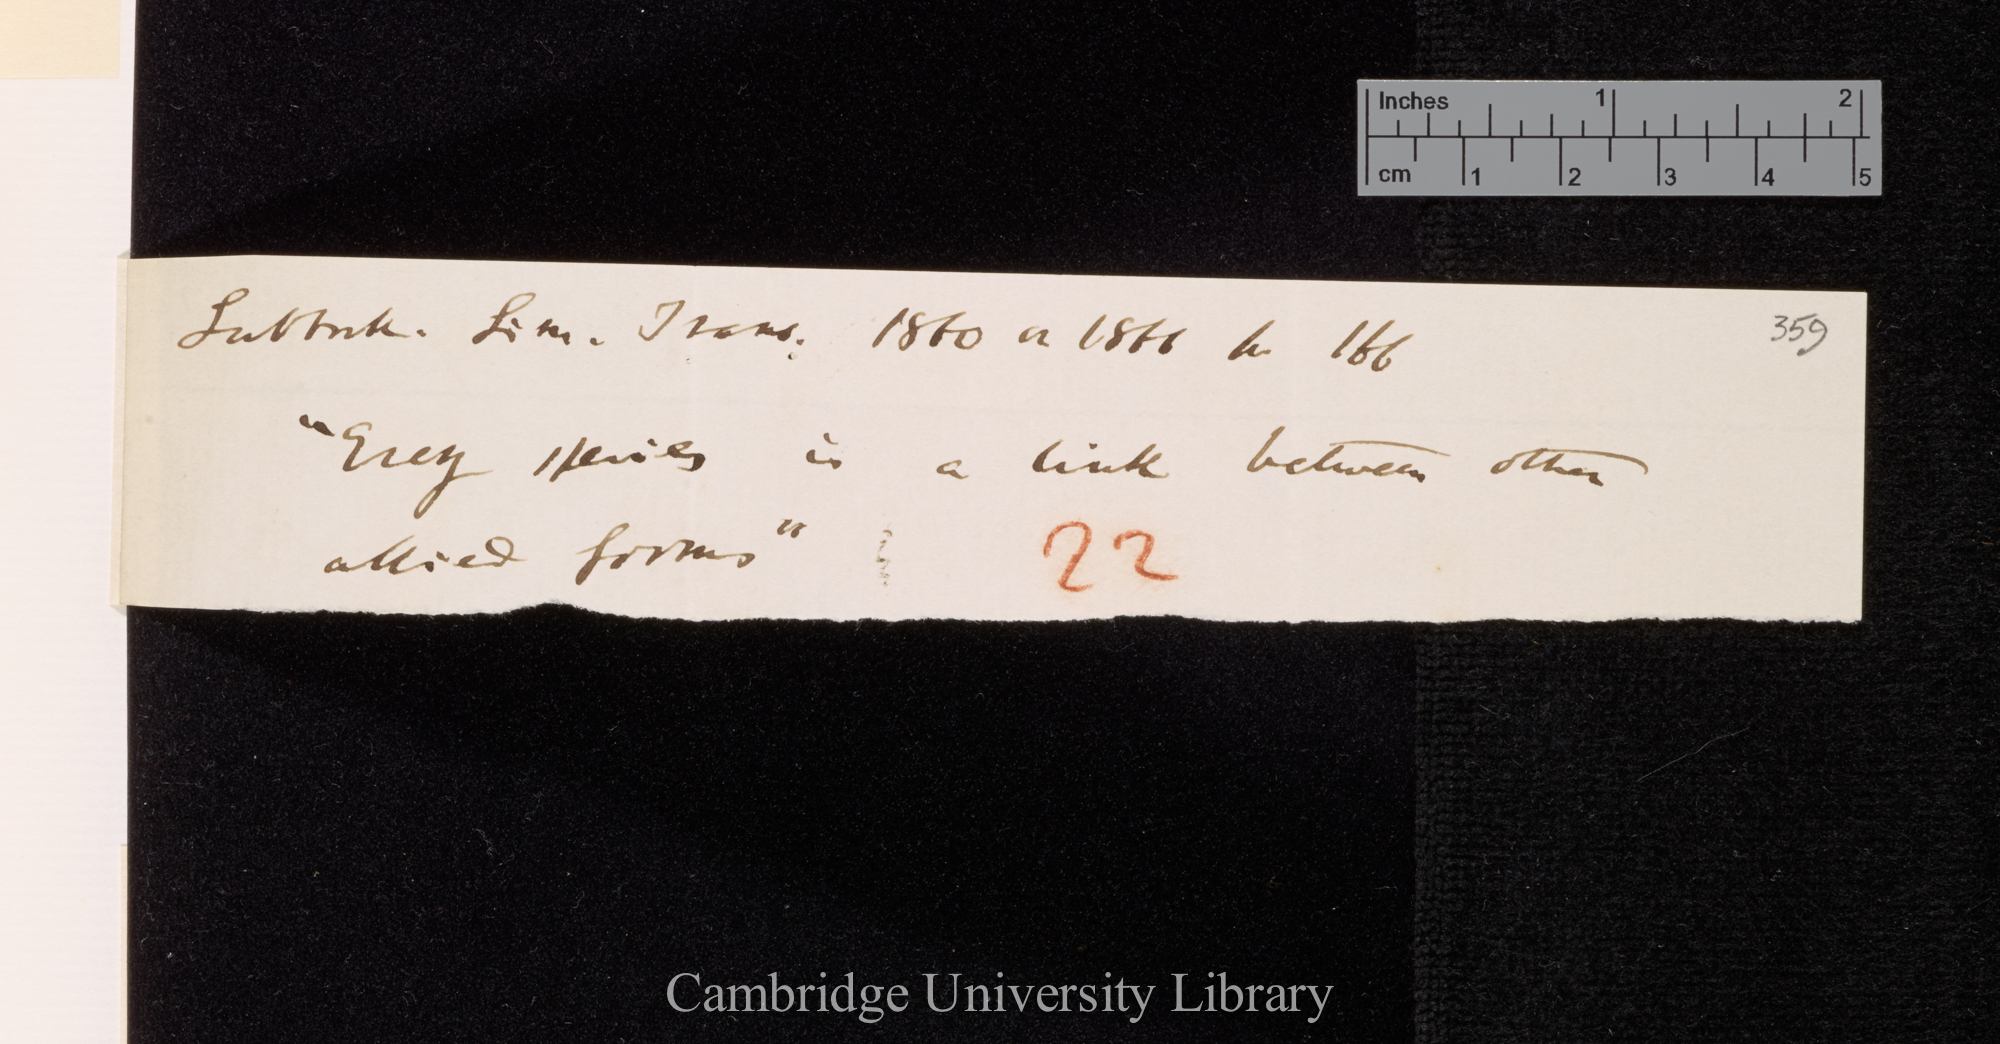 Inches 1 2
cm 1 2 3 4 5
359
Lubbock. Linn. Trans. 1860 or 1866 p. 166
"Every species is a link between other
allied forms"
22
Cambridge University Library